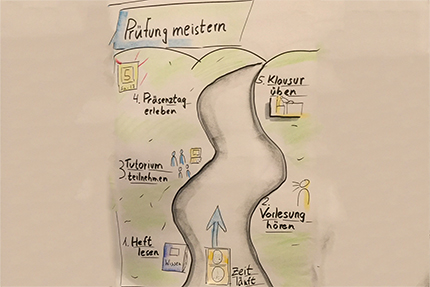 Prüfung meistern
5. Klausur
üben
4. Präsenztag
erleben
3 Tutorium
teilnehmen
2.
Vorlesung
hören
1. Heft
lesen
Wissen
Zeit
läuft